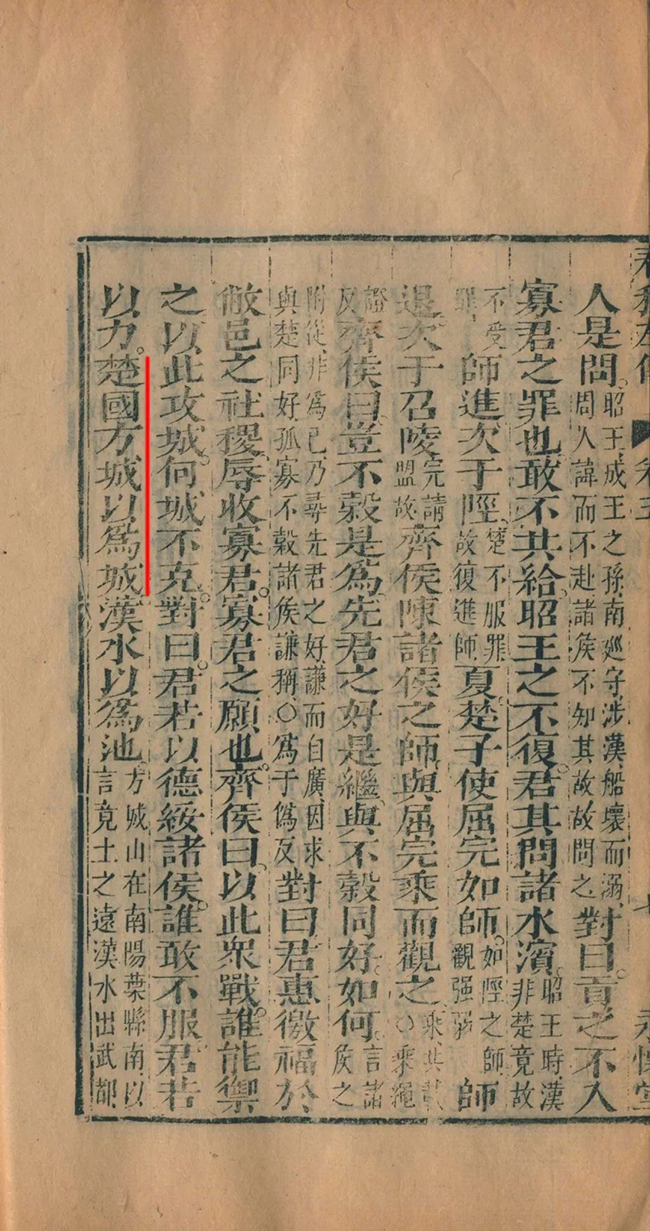 人是問。昭王成王之孫南廵守涉漢船壞而溺周人諱而不赴諸侯不知其故故問之對曰。貢之不入
寡君之罪也。敢不共給。昭王之不復。君其問諸水濱。昭王時漢非楚竟故
不受罪師進次于陘。楚不服罪故復進師夏。楚子使屈完如師。如陘之師觀强弱師
退次于召陵。完請盟故齊侯陳諸侯之師。與屈完乘而觀之。乘共載○乘繩
證反齊侯曰。豈不穀是爲。先君之好是繼。與不穀同好。如何。言諸侯之
附從非爲己乃尋先君之好謙而自廣因求與楚同好孤寡不穀諸侯謙稱○爲于僞反對曰。君惠徼福於
敝邑之社稷。辱收寡君。寡君之願也。齊侯曰。以此衆戰。誰能禦
之。以此攻城。何城不克。對曰。君若以德綏諸侯。誰敢不服。君若
以力。楚國方城以爲城。漢水以爲池。方城山在南陽葉縣南以言竟土之遠漢水出武都